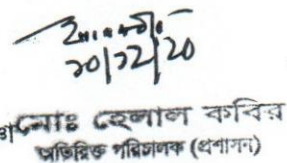 ২০/১২/২০
মোঃ হেলাল কবির
অতিরিক্ত পরিচালক (প্রশাসন)